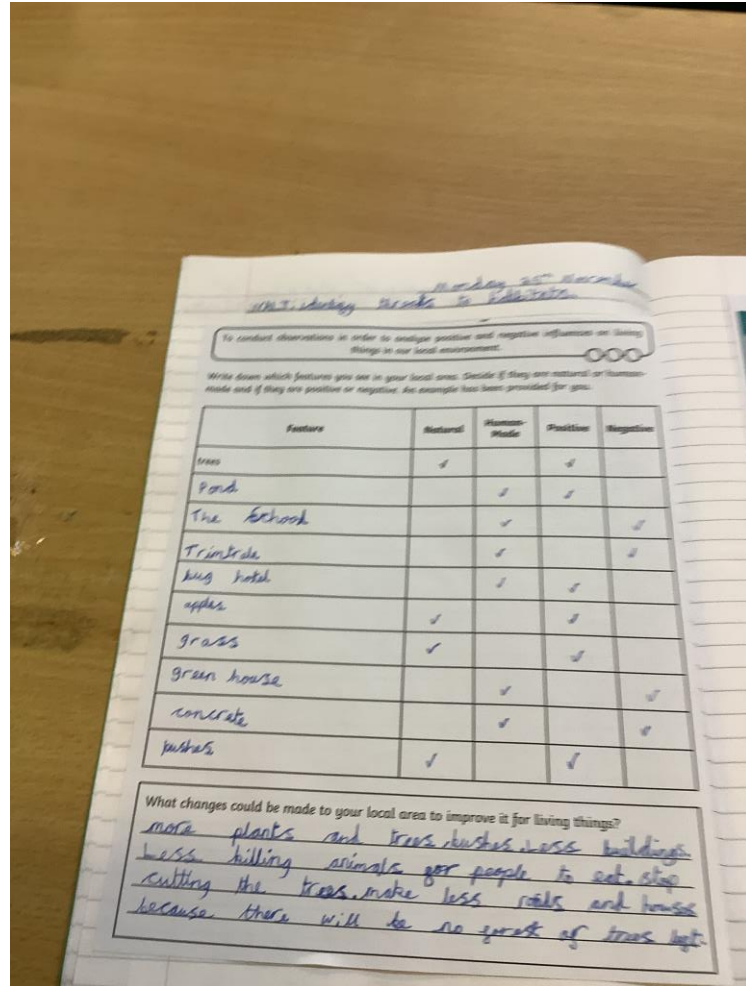 Monday 25th November
threats to habitats
To conduct observations in order to analyse positive and negative influences on living
things in our local environment.
Write down which features you see in your local area. Decide if they are natural or human-
made and if they are positive or negative. An example has been provided for you.
Feature Natural Human- Made Positive Negative
trees ✓ ✓
Pond ✓ ✓
The School ✓ ✓
Trimtrale ✓ ✓
bug hotel ✓ ✓
apples ✓ ✓
grass ✓ ✓
green house ✓ ✓
concrate ✓ ✓
bushes ✓ ✓
What changes could be made to your local area to improve it for living things?
more plants and trees, bushes. Less buildings.
Less killing animals for people to eat. stop
cutting the trees. make less roads and houses
because there will be no forest of trees left.